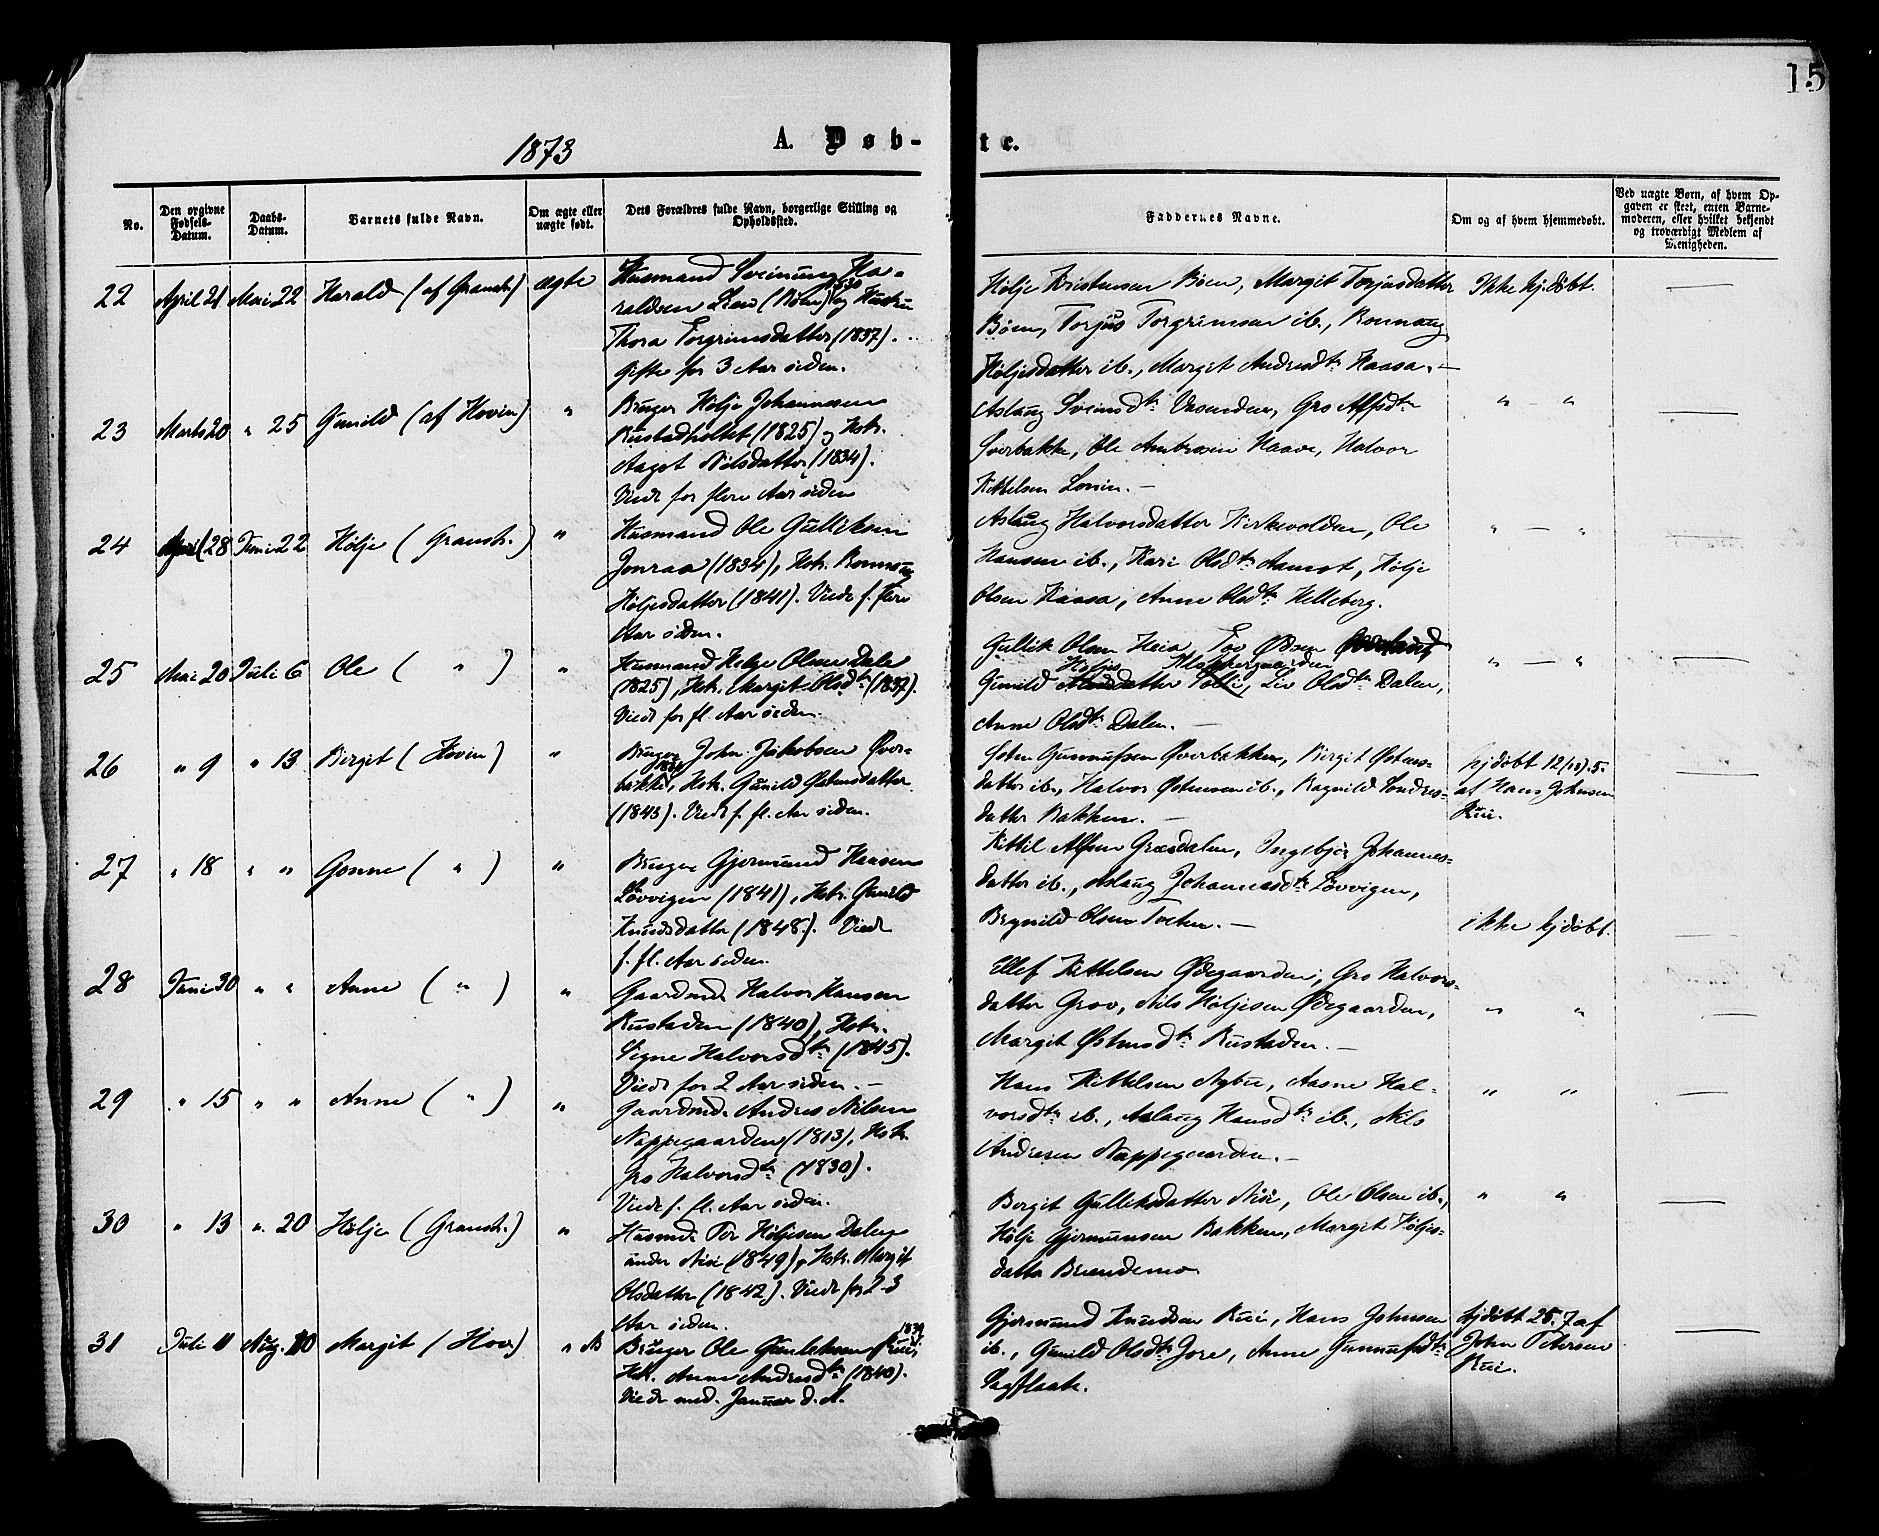 15
1873
A. Døb-
te.
No.
Den opgivne Fødsels-Datum.
Daabs-Datum.
Barnets fulde Navn.
Om ægte eller uægte født.
Dets Forældres fulde Navn, borgerlige Stilling og Opholdssted.
Faddernes Navne.
Om og af hvem hjemmedøbt.
Ved uægte Børn, af hvem Opgaven er skeet, enten Barnemoderen, eller hvilket bekjendt og troværdigt Medlem af Menigheden.
22 April 21 Mai 22 Harald (af Gransh.) ægte
Husmand Sveinung Ha-
raldsen (Bøen) og Hustru
Thora Torgrimsdatter (1837).
Gifte for 3 Aar siden.
Hølje Kristensen Bøen, Margit Torjusdatter
Bøen, Torjus Torgrimsen ib., Ronnaug
Høljesdatter ib., Margit Andresdtr Kaasa. –
Ikke hj.døbt. —
23 Marts 20 " 25 Gunild (af Hovin) "
Bruger Hølje Johannesen
Rustadholtet (1825) og Hstr.
Aaget Nilsdatter (1834).
Viede for flere Aar siden
Aslaug Sveinsdtr Vasenden, Gro Alfsdtr
Sverbakke, Ole Ambrosen Haave, Halvor
Kittelsen Lonin. –
" — " —
24 April 28 Juni 22 Hølje (Gransh.) "
Husmand Ole Gulliksen
Jonraa (1834), Hstr. Ronnaug
Høljesdatter (1841). Viede f. flere
Aar siden.
Aslaug Halvorsdatter Kirkevolden, Ole
Hansen ib., Kari Olsdtr Aamot, Hølje
Olsen Kaasa, Anne Olsdtr Helleberg.
" — " —
25 Mai 20 Juli 6 Ole ( " ) "
Husmand Helge Olsen Dale
(1825), Hstr. Margit Olsdtr (1837).
Viede for fl. Aar siden.
Gullik Olsen Heia, Tov
Høljes Klappergaarden
Gunild Liv Olsdtr Dalen,
Anne Olsdtr Dalen. –
" — " —
26 " 9 " 13 Birgit (Hovin) "
Bruger John Jakobsen Øver-
bakke, Hstr. Gunild Østensdatter
(1843). Viede f. fl. Aar siden.
Østen Gunnufsen Øverbakken, Birgit Østens-
datter ib., Halvor Østensen ib., Ragnild Sondres-
datter Bakken. –
hjdøbt 12/5.
af Hans Johnsen
Rui. —
27 " 18 " " Gonne ( " ) "
Bruger Gjermund Hansen
Løvvigen (1841), Hstr. Gunild
Knudsdatter (1848). Viede
f. fl. Aar siden.
Kittil Alfsen Græsdalen, Ingebjør Johannes-
datter ib., Aslaug Johannesdtr Løvvigen,
Bergnild Olsen Tveten. –
ikke hjdøbt. —
28 Juni 30 " " Anne ( " ) "
Gaardmd. Halvor Hansen
Rustaden (1840), Hstr.
Signe Halvorsdtr (1845).
Viede for 2 Aar siden. –
Ellef Kittelsen Ødegaarden, Gro Halvors-
datter Grov, Nils Høljesen Ødegaarden,
Margit Østensdtr Rustaden. –
" " —
29 " 15 " " Anne ( " ) "
Gaardmd. Andres Nilsen
Nappegaarden (1813), Hstr.
Gro Halvorsdtr (1830).
Viede f. fl. Aar siden.
Hans Kittelsen Nybu, Aasne Hal-
vorsdtr ib., Aslaug Hansdtr ib., Nils
Andresen Nappegaarden. –
" " —
30 " 13 " 20 Hølje (Gransh.) "
Husmd. Tor Høljesen Dalen
under Nisi (1849), Hstr. Margit
Olsdatter (1842). Viede for 2-3
Aar siden.
Bergit Gulliksdatter Nisi, Ole Olsen ib.,
Hølje Gjermunsen Bakken, Margit Høljes-
datter Brændemo
" " —
31 Juli 11 Aug. 10 Margit (Hov.) "
Bruger Ole Gunleiksen Rui, 1839
Hstr. Anne Andresdtr (1840).
Viede med. Januar d. A.
Gjermund Knudsen Rui, Hans Johnsen
ib., Gunild Olsdtr Jore, Anne Gunnufsdtr
Sagflaate.
hjdøbt 25.7 af
John Petersen
Rui. —